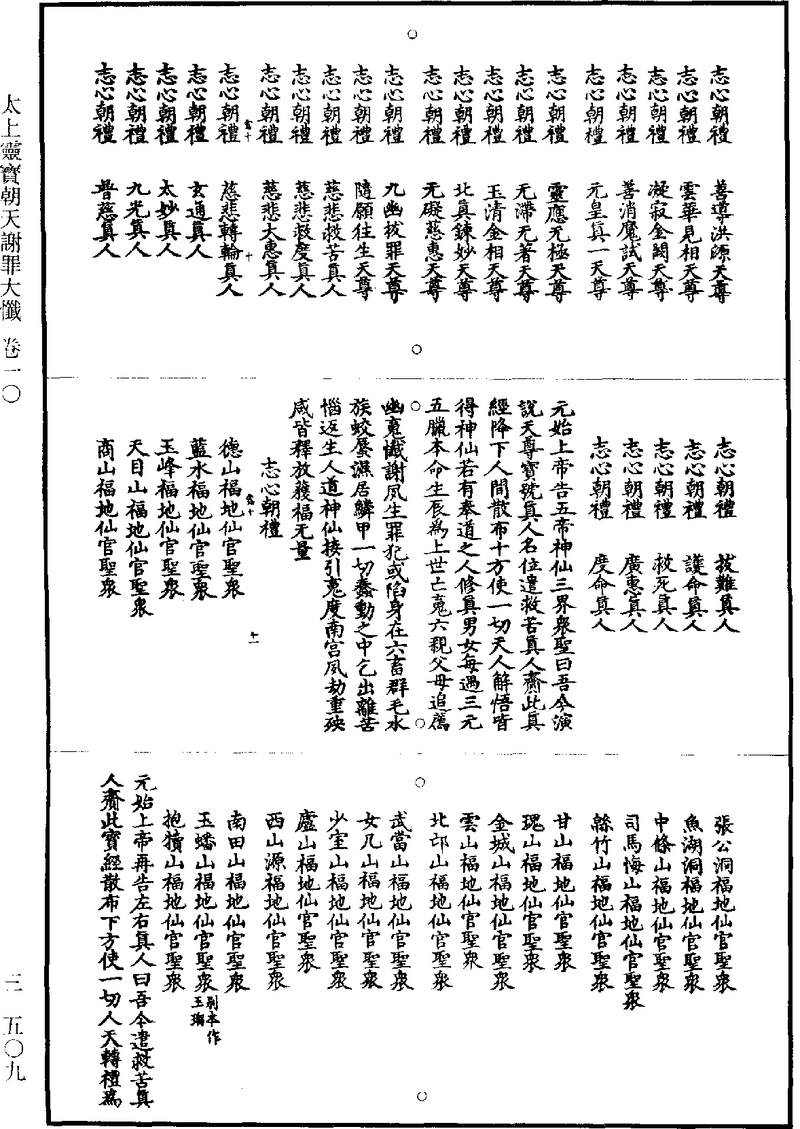 志心朝禮　善導洪源天尊
志心朝禮　雲華見相天尊
志心朝禮　凝寂金闕天尊
志心朝禮　善消魔試天尊
志心朝禮　元皇眞一天尊
志心朝禮　靈應无極天尊
志心朝禮　无滯无著天尊
志心朝禮　玉清金相天尊
志心朝禮　北眞鍊妙天尊
志心朝禮　无礙慈惠天尊
志心朝禮　九幽拔罪天尊
志心朝禮　隨願往生天尊
志心朝禮　慈悲救苦眞人
志心朝禮　慈悲救度眞人
志心朝禮　慈悲大惠眞人
志心朝禮　慈悲轉輪眞人
志心朝禮　玄通眞人
志心朝禮　太妙眞人
志心朝禮　九光眞人
志心朝禮　普慈眞人
志心朝禮　拔難眞人
志心朝禮　護命眞人
志心朝禮　救死眞人
志心朝禮　廣惠眞人
志心朝禮　度命眞人
元始上帝告五帝神仙三界衆聖曰吾今演
說天尊寶號眞人名位遣救苦眞人齎此眞
經降下人間散布十方使一切天人解悟皆
得神仙若有奉道之人修眞男女每遇三元
五臘本命生辰爲上世亡䰟六親父母追薦
幽䰟懺謝夙生罪犯或陷身在六畜群毛水
族蛟蜃濕居鱗甲一切蠢動之中乞出離苦
惱返生人道神仙接引䰟度南宮夙劫重殃
咸皆釋放獲福无量
志心朝禮
德山福地仙官聖衆
藍水福地仙官聖衆
玉峰福地仙官聖衆
天目山福地仙官聖衆
商山福地仙官聖衆
張公洞福地仙官聖衆
魚湖洞福地仙官聖衆
中條山福地仙官聖衆
司馬悔山福地仙官聖衆
緜竹山福地仙官聖衆
甘山福地仙官聖衆
瑰山福地仙官聖衆
金城山福地仙官聖衆
雲山福地仙官聖衆
北邙山福地仙官聖衆
武當山福地仙官聖衆
女几山福地仙官聖衆
少室山福地仙官聖衆
廬山福地仙官聖衆
西山源福地仙官聖衆
南田山福地仙官聖衆
玉蟠山福地仙官聖衆 別本作玉瑠
抱犢山福地仙官聖衆
元始上帝再告左右眞人曰吾今遣救苦眞
人齎此寶經散布下方使一切人天轉禮爲
太上靈寶朝天謝罪大懺 卷一〇
三 五〇九